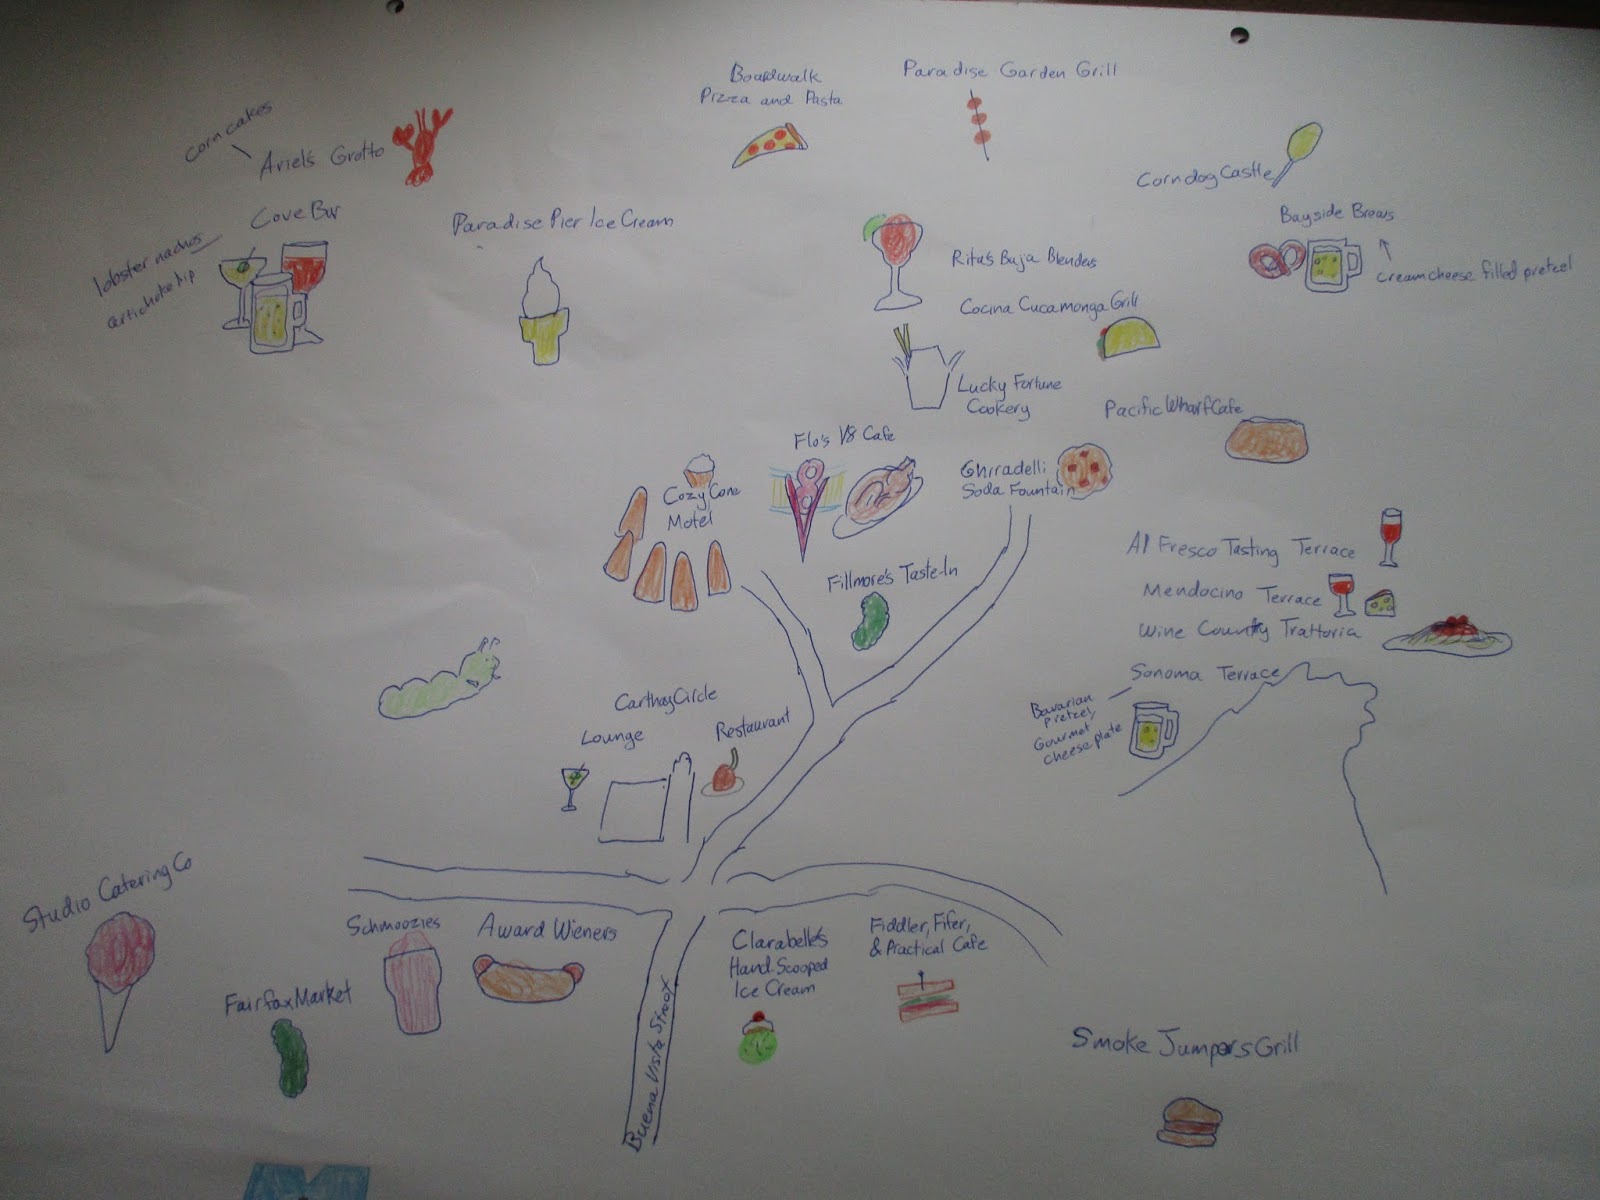 Boardwalk
Pizza and Pasta
Paradise Garden Grill
corn cakes
Ariel's Grotto
Corndog Castle
Cove Bar
lobster nachos
artichoke dip
Paradise Pier Ice Cream
Bayside Brews
creamcheese filled pretzel
Rita's Baja Blenders
Cocina Cucamonga Grill
Lucky Fortune
Cookery
Pacific Wharf Cafe
Flo's V8 Cafe
Ghiradelli
Soda Fountain
Cozy Cone
Motel
Al Fresco Tasting Terrace
Fillmore's Taste-In
Mendocino Terrace
Wine Country Trattoria
Sonoma Terrace
Bavarian
Pretzel,
Gourmet
cheese plate
Carthay Circle
Lounge
Restaurant
Studio Catering Co
Schmoozies
Award Wieners
Clarabelle's
Hand-Scooped
Ice Cream
Fiddler, Fifer,
& Practical Cafe
Fairfax Market
Buena Vista Street
Smoke Jumpers Grill